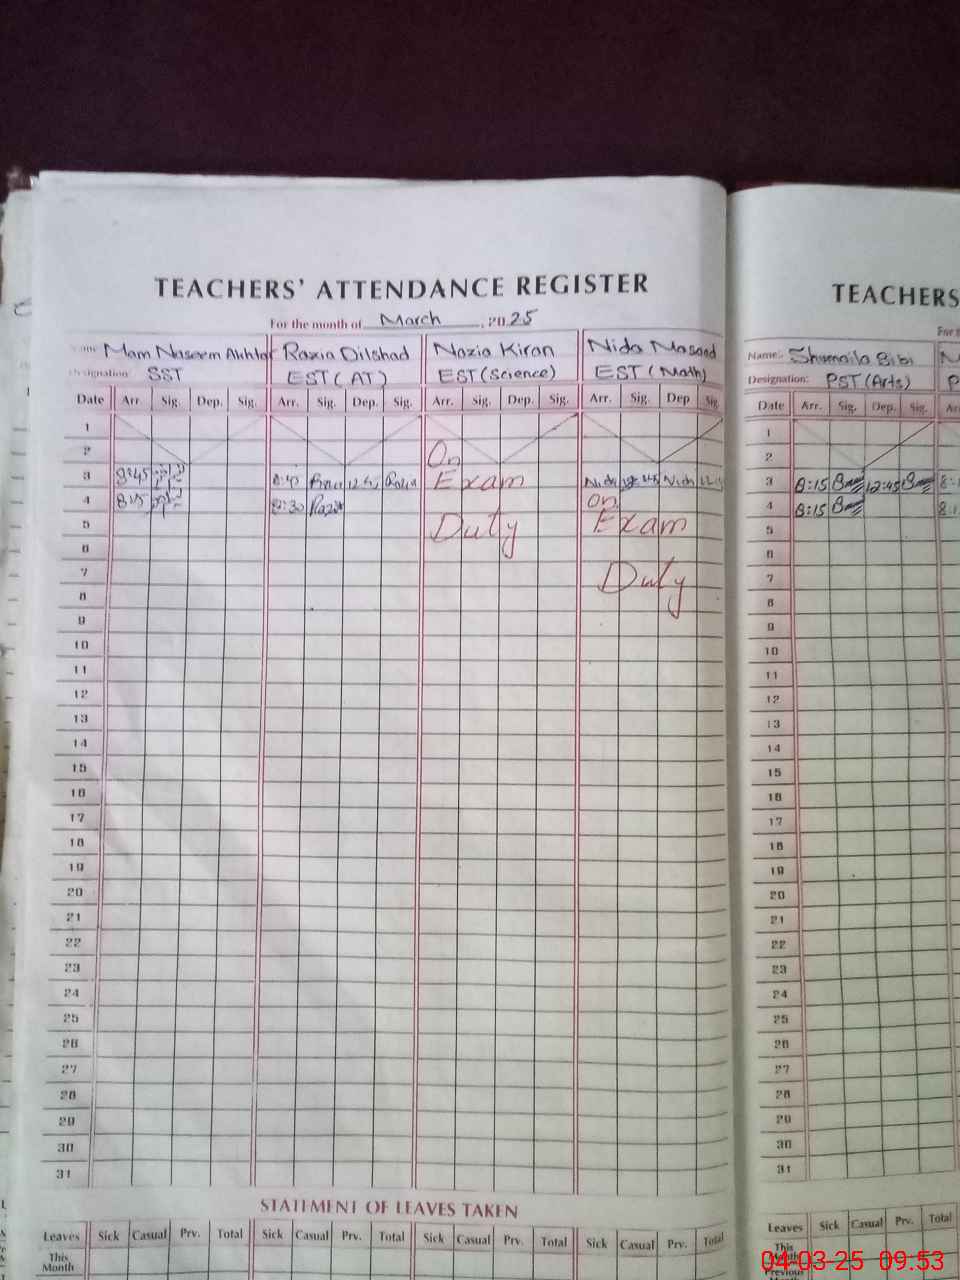 TEACHERS' ATTENDANCE REGISTER
For the month of March, 2025
Name: Mam Naseem Akhtar Razia Dilshad Nazia Kiran Nida Masood
Designation: SST EST (AT) EST (Science) EST (Math)
Date Arr. Sig. Dep. Sig. Arr. Sig. Dep. Sig. Arr. Sig. Dep. Sig. Arr. Sig. Dep Sig.
1
2 On
3 8:45 Exam Nida
4 8:15 8:30 Razia on
5 Duty Exam
6
7 Duty
8
9
10
11
12
13
14
15
16
17
18
19
20
21
22
23
24
25
26
27
28
29
30
31
STATEMENT OF LEAVES TAKEN
Leaves Sick Casual Prv. Total Sick Casual Prv. Total Sick Casual Prv. Total Sick Casual Prv. Total
This
Month
TEACHERS
Name: Shumaila Bibi
Designation: PST (Arts)
Date Arr. Sig. Dep. Sig.
1
2
3 8:15 12:45
4 8:15
5
6
7
8
9
10
11
12
13
14
15
16
17
18
19
20
21
22
23
24
25
26
27
28
29
30
31
Leaves Sick Casual Prv. Total
This
Month
Previous
04-03-25 09.53